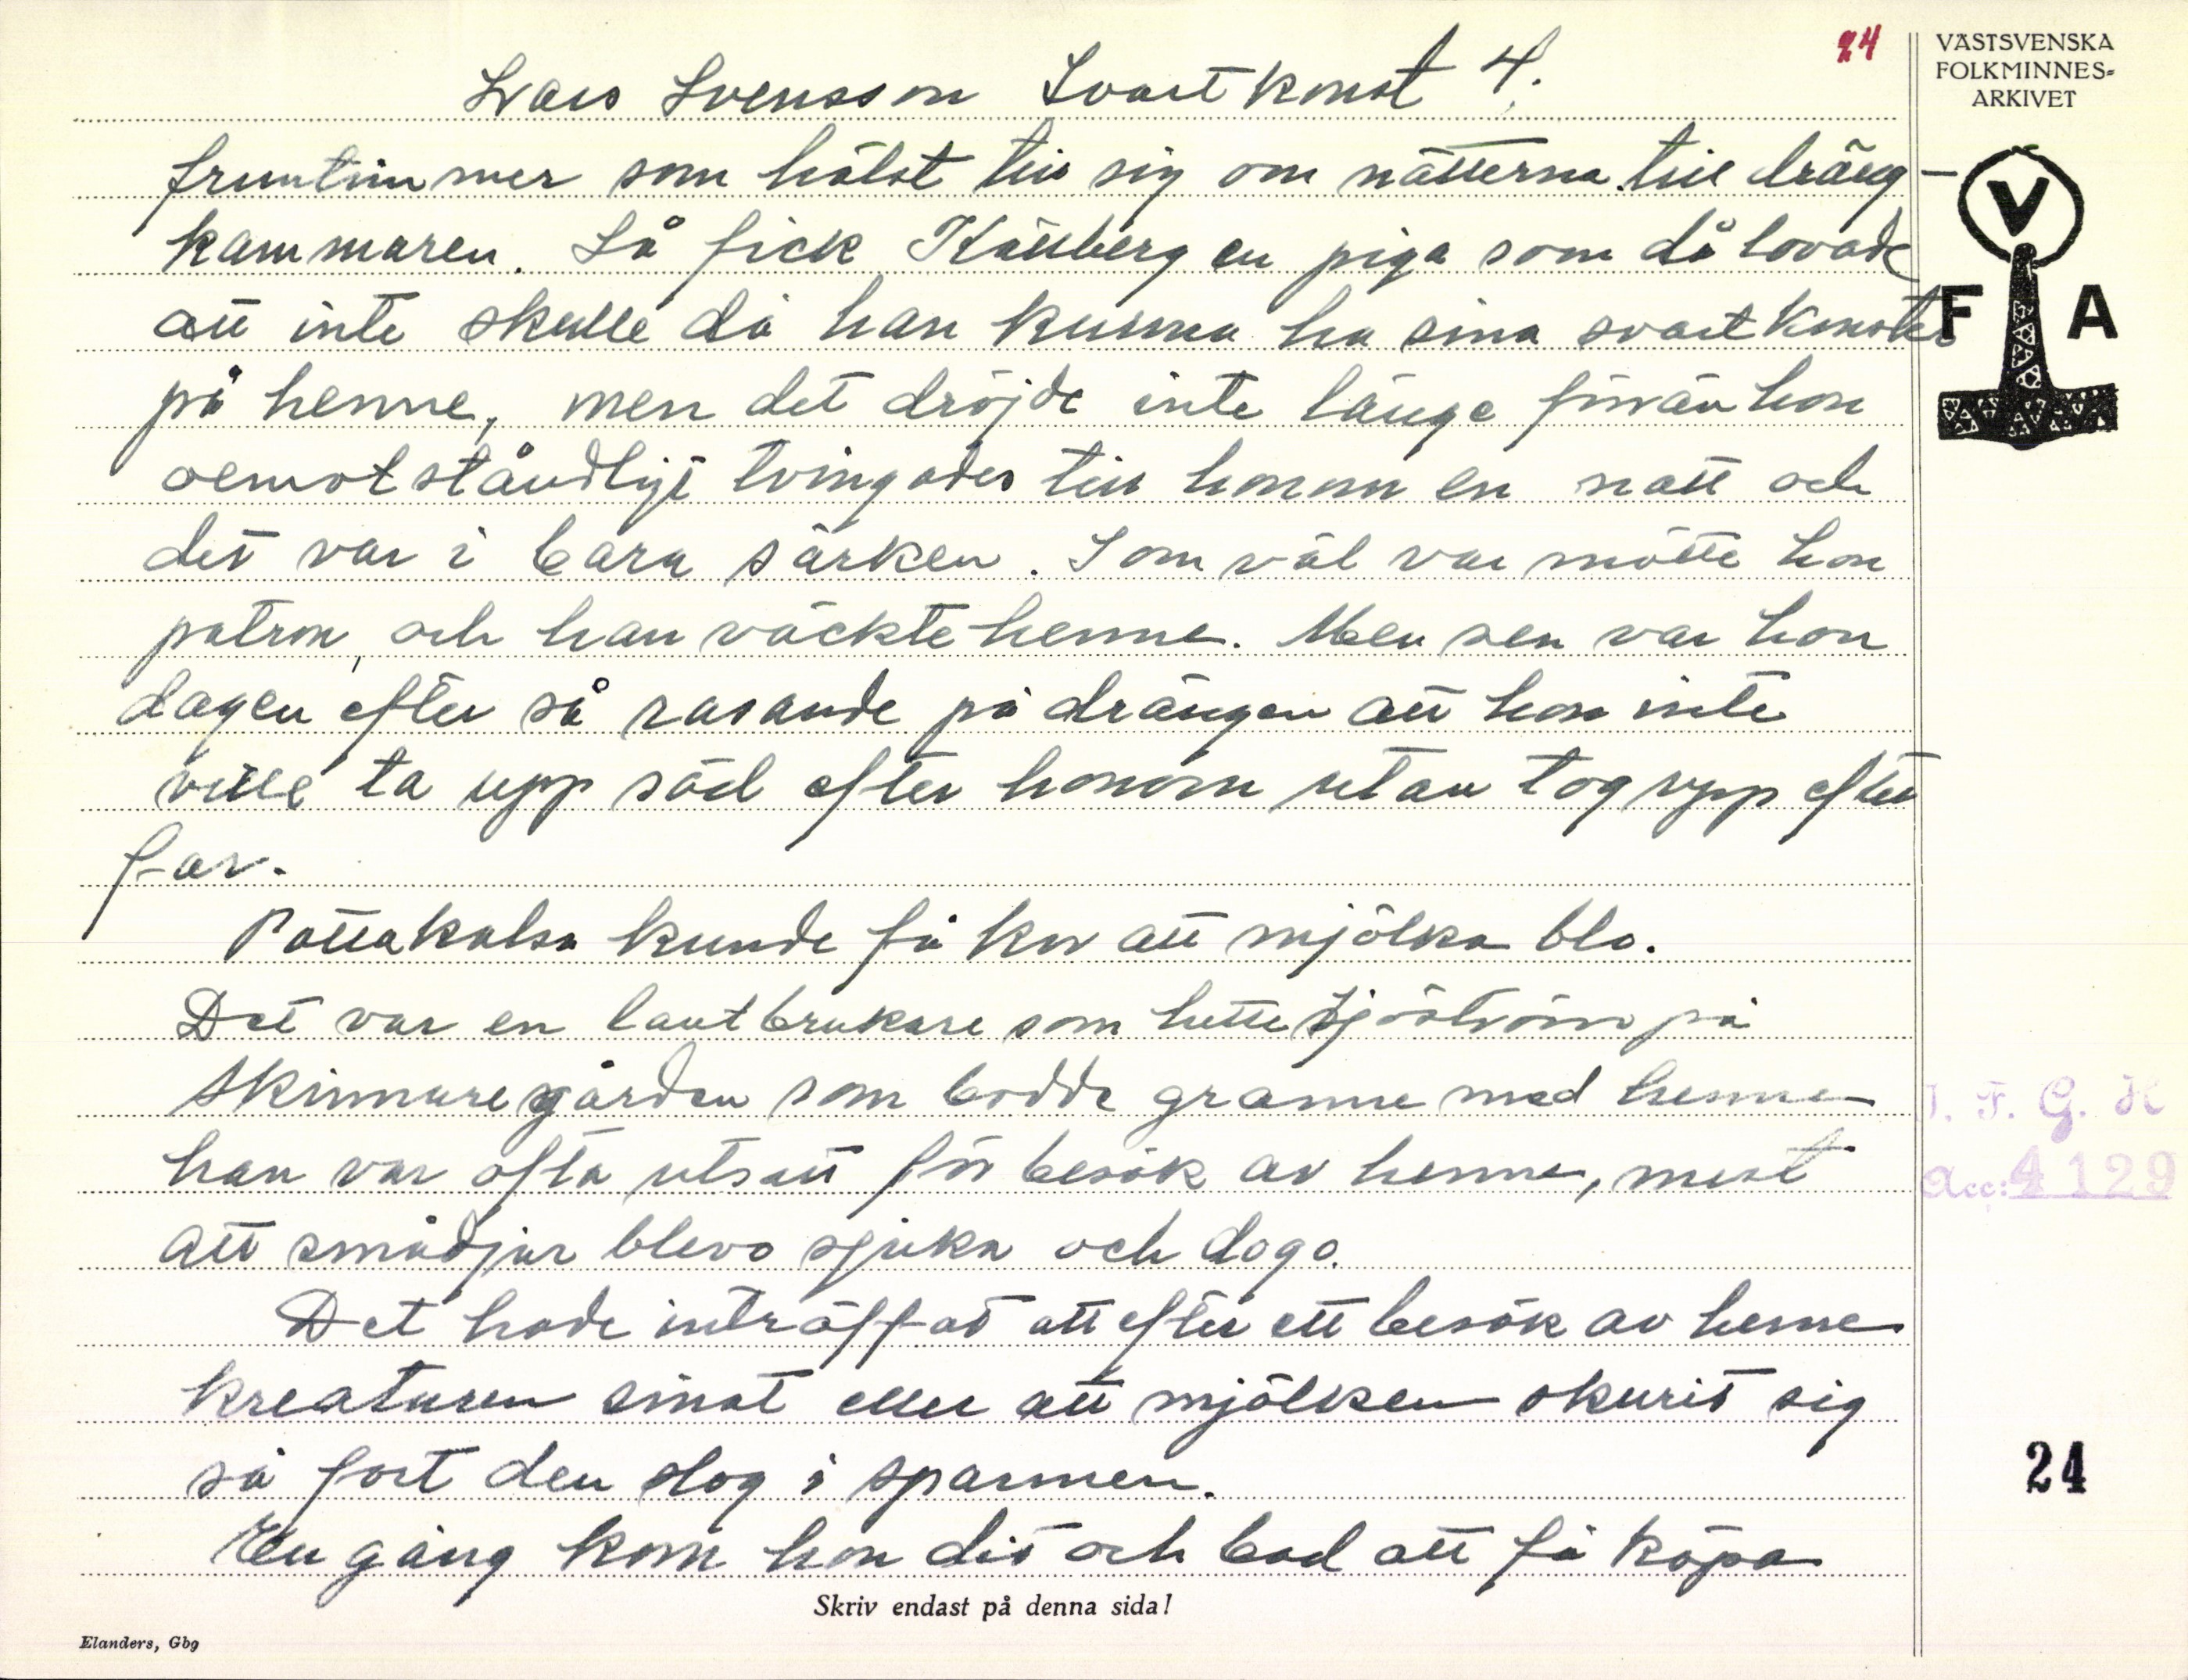 24
VÄSTSVENSKA
FOLKMINNES-
ARKIVET
Lars Svensson Svartkonst 4.
fruntimmer som hälst till sig om nätterna till dräng-
kammaren. Så fick Källberg en piga som då lovade
att inte skulle då han kunna ha sina svartkonster
på henne, men det dröjde inte länge förrän hon
oemotståndligt tvingades till honom en natt och
det var i bara särken. Som väl var mötte hon
patron, och han väckte henne. Men sen var hon
dagen efter så rasande på drängen att hon inte
ville ta upp säd efter honom utan tog upp efter
far.
Påttakalsa kunde få kor att mjölka blo.
Det var en lantbrukare som hette Sjöström på
Skinnaregården som bodde granne med henne
han var ofta utsatt för besök av henne, mest
att smådjur blevo sjuka och dogo.
Det hade inträffat att efter ett besök av henne
kreaturen sinat eller att mjölken skurit sig
så fort den slog i spannen.
En gång kom hon dit och bad att få köpa
V
F A
I. F. G. H
Acc: 4129
24
Skriv endast på denna sida!
Elanders, Gbg